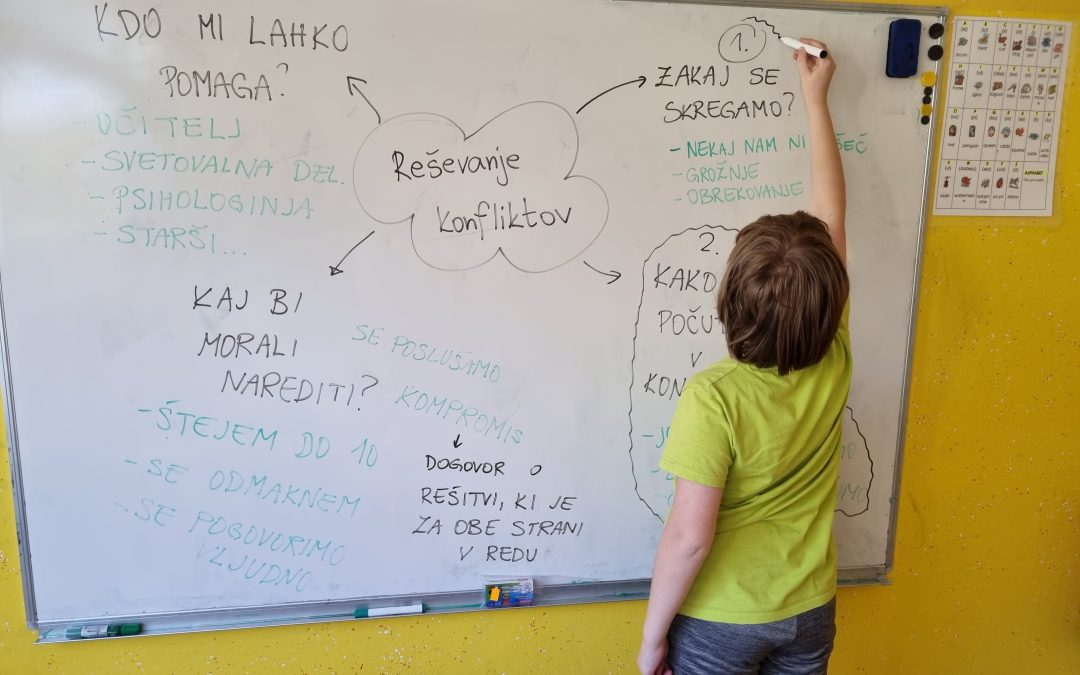 KDO MI LAHKO
POMAGA?
- UČITELJ
- SVETOVALNA DEL.
- PSIHOLOGINJA
- STARŠI...
Reševanje
konfliktov
1.
ZAKAJ SE
SKREGAMO?
- NEKAJ NAM NI
- GROŽNJE
- OBREKOVANJE
2.
KAKO
V
KAJ BI
MORALI
NAREDITI?
- ŠTEJEM DO 10
- SE ODMAKNEM
- SE POGOVORIMO
VLJUDNO
SE POSLUŠAMO
KOMPROMIS
DOGOVOR O
REŠITVI, KI JE
ZA OBE STRANI
V REDU
ALPHABET